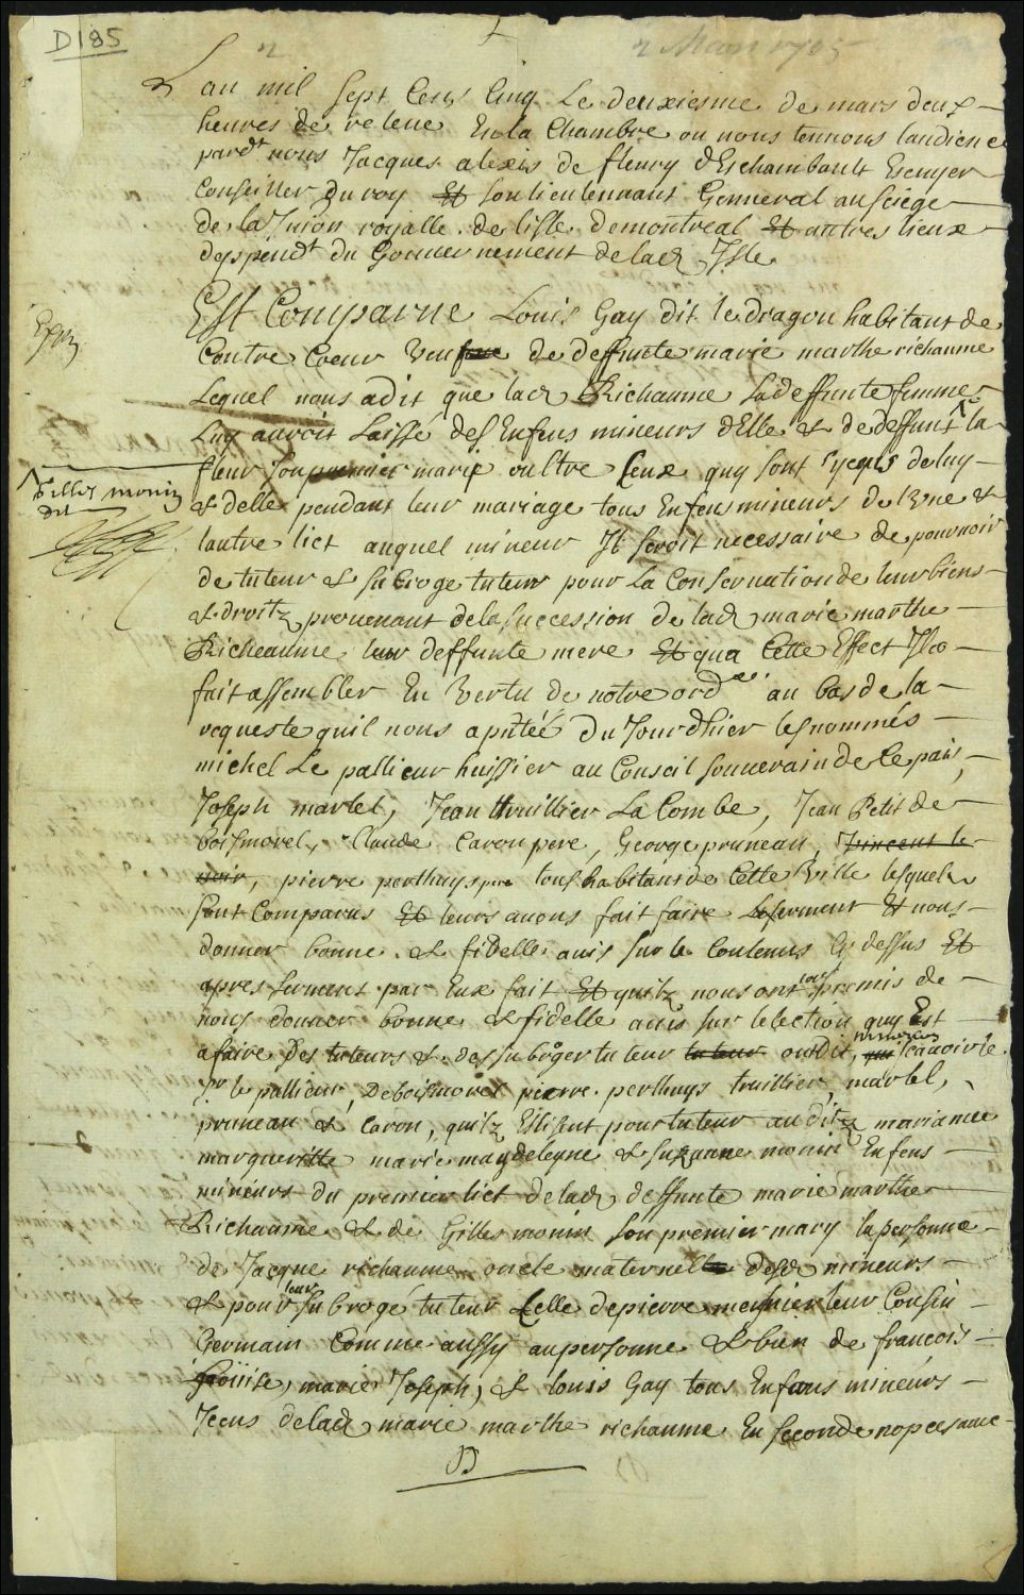 D185
2
2 Mars 1705
Lan mil sept Cens Cinq Le deuxiesme de mars deux
heures de relevé En la Chambre ou nous tennons laudience
pardt nous Jacques alexis de fleury dEschambault Escuyer
Conseiller du roy Et son lieutennant Genneral au siege
de la Juion royalle de lisle de montreal Et autres lieux
despendt du Gouvernement de lad Isle
Est Comparue Louis Gay dit le dragon habitant de
Contre Coeur veuf de deffunte marie marthe richaume
Lequel nous a dit que lad Richaume sa deffunte femme
Luy auroit Laissé des Enfens mineurs dElle & de deffunt la
Gilles monin
dit
fleur son premier marie oultre Ceux quy sont yssus de luy
& delle pendant leur mariage tous Enfens mineurs de lune &
lautre lict auquel mineur Il seroit necessaire de pourvoir
de tuteur & subroge tuteur pour La Conservation de leur biens
& droitz provenant de la succession de lad marie marthe
Richeaume leur deffunte mere Et qua Cette Effect Il a
fait assembler En Vertu de notre ordce au bas de la
requeste quil nous a pntéé du Jourdhier les nommés
michel Le pallieur huissier au Conseil souverain de Ce pais,
Joseph martel, Jean thuillier La Combe, Jean Petit de
boismorel, Claude Caron pere, George pruneau, Vincent le
noir, pierre perthuys pere tous habitans de Cette Ville lesquels
sont Comparus Et leurs avons fait faire Le serment Et nous
donner bonne & fidelle avis sur le Contenus Cy dessus Et
apres serment par Eux fait Et quilz nous ont tous promis de
nous donner bonne & fidelle avis sur lelection quy Est
a faire des tuteurs & des subroger tuteur tuteur ont dit, scavoir le
sr le pallieur, Deboismorel pierre perthuys truillier, martel,
pruneau & Caron, quilz Eslisent pour tuteur auditz marianne
margueritte marie magdeleyne & suzanne monin Enfens
mineurs du premier lict de lad deffunte marie marthe
Richaume & de Gilles monin son premier mary la personne
de Jacque richaume oncle maternelle desd mineurs
& pour leur subrogé tuteur Celle de pierre mesnier leur Cousin
Germain Comme aussy au personne & bien de francois
Joseph, & louis Gay tous Enfans mineurs
Iceus de lad marie marthe richaume En seconde nopces avec